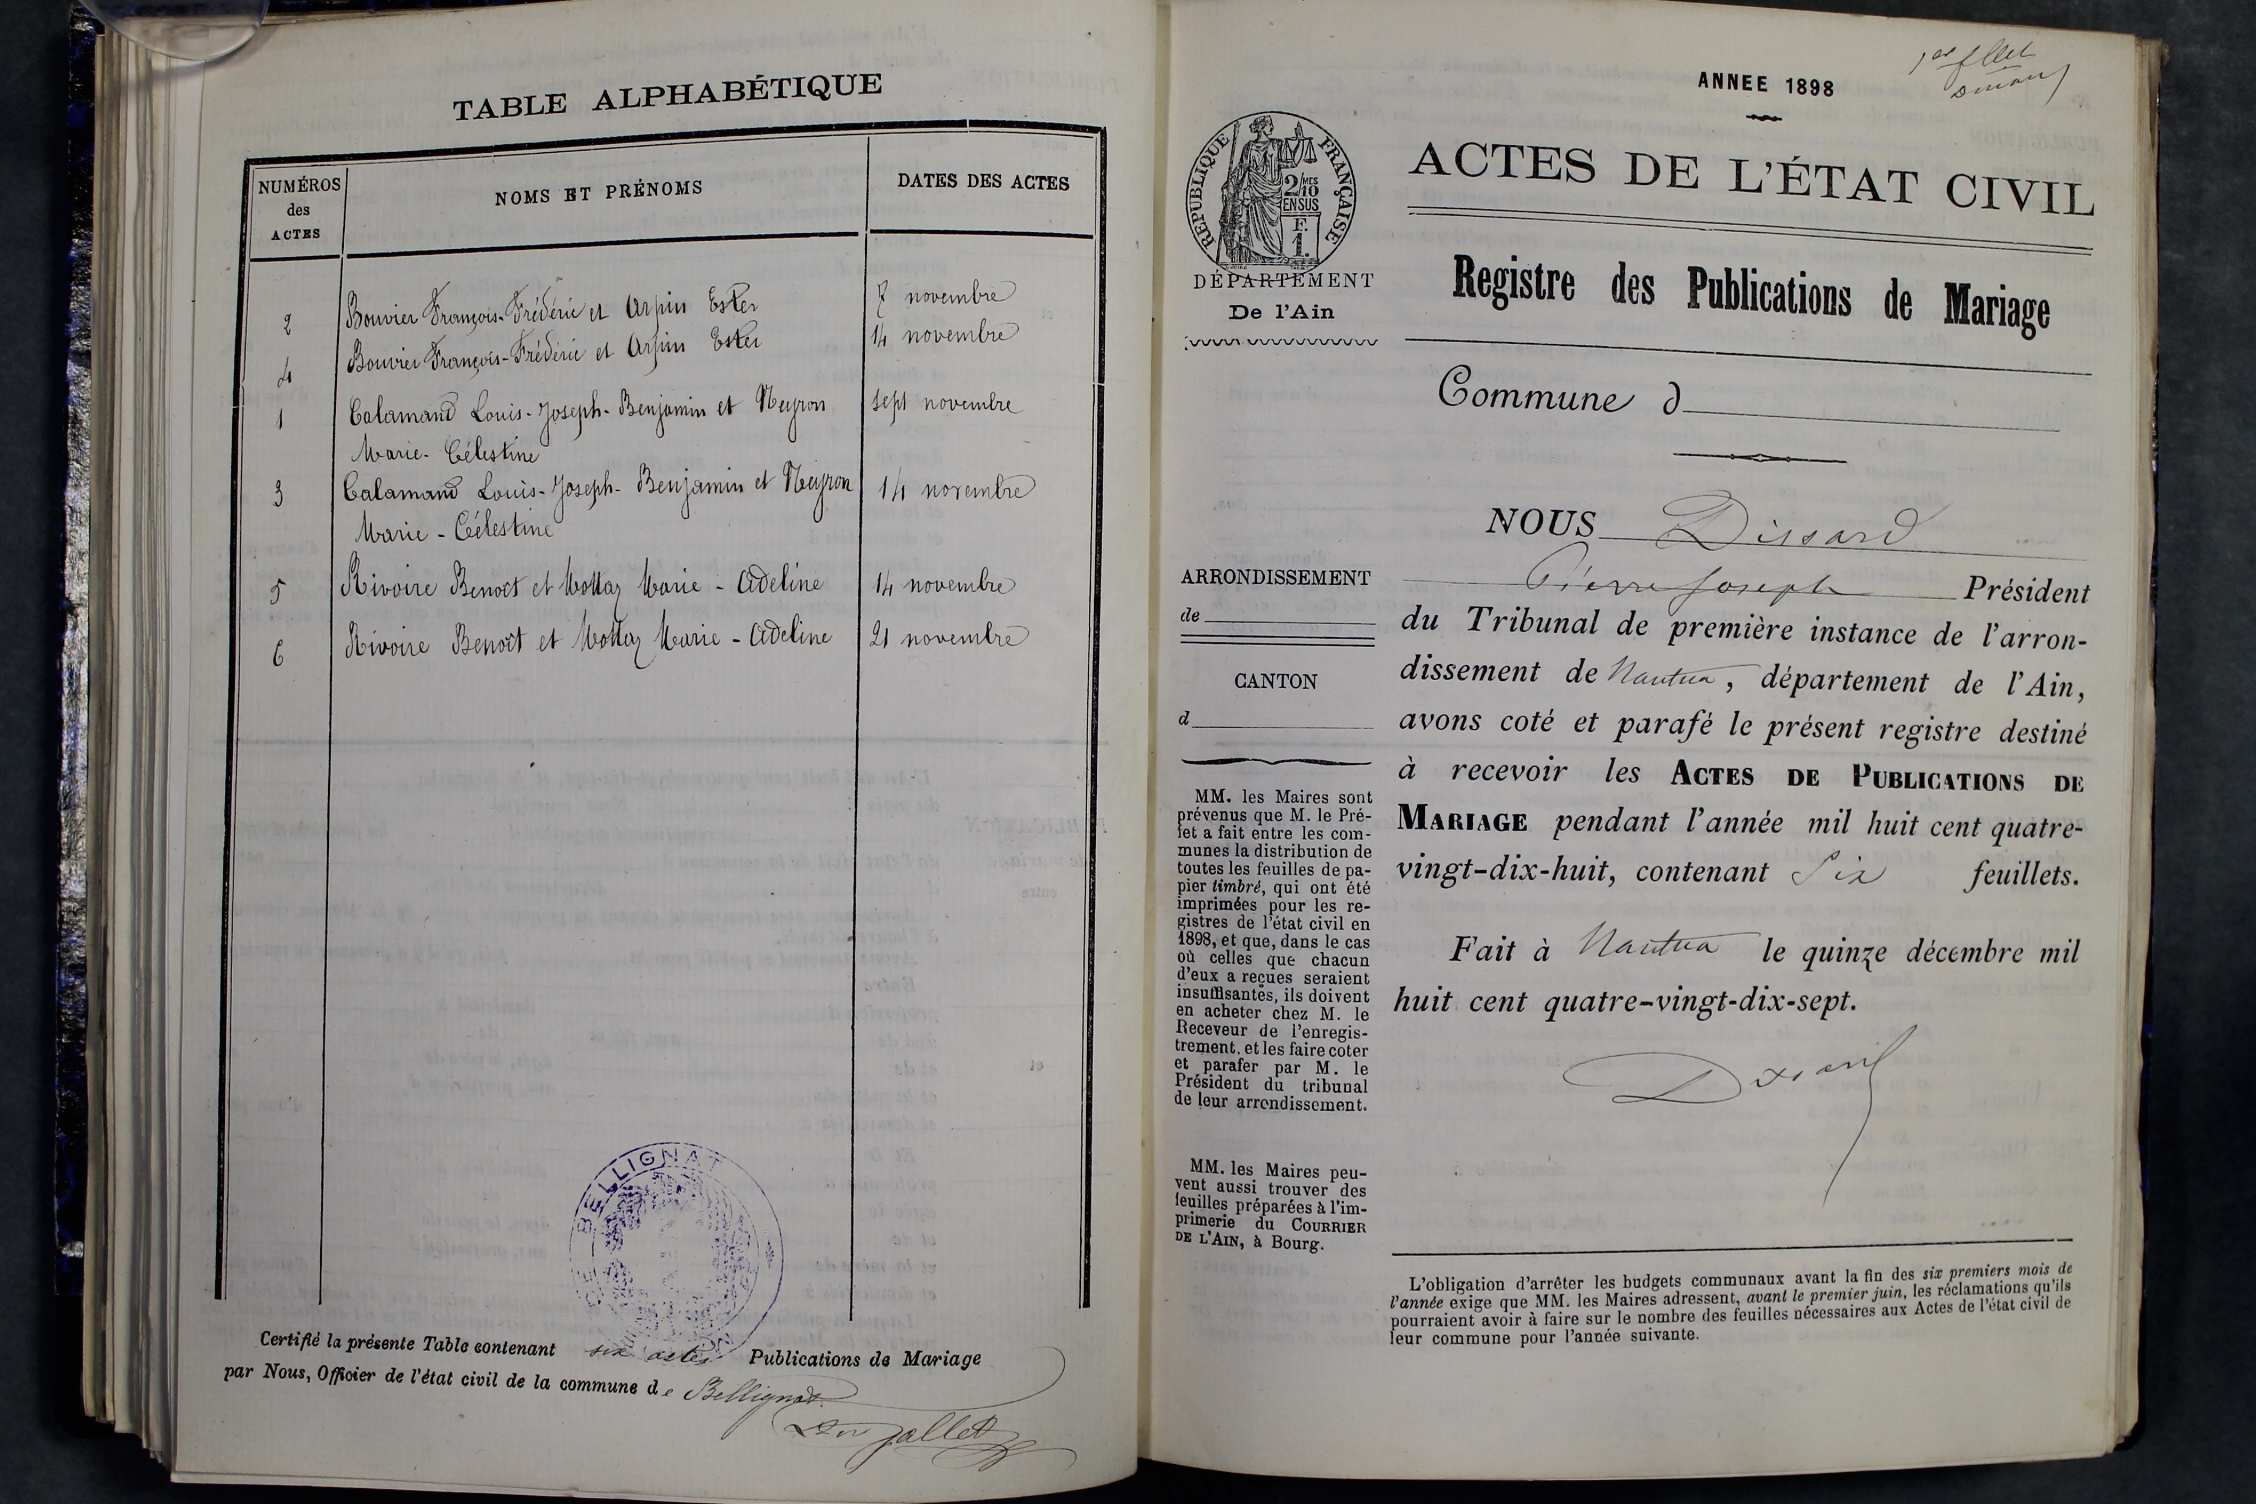 TABLE ALPHABÉTIQUE
NUMÉROS
des
ACTES
NOMS ET PRÉNOMS
DATES DES ACTES
2 Bouvier François-Frédéric et Arpin Ester 7 novembre
4 Bouvier François-Frédéric et Arpin Ester 14 novembre
1 Calamand Louis-Joseph-Benjamin et Neyron sept novembre
Marie-Célestine
3 Calamand Louis-Joseph-Benjamin et Neyron 14 novembre
Marie-Célestine
5 Rivoire Benoît et Mottaz Marie-Adeline 14 novembre
6 Rivoire Benoît et Mottaz Marie-Adeline 21 novembre
BELLIGNAT
Certifié la présente Table contenant six actes Publications de Mariage
par Nous, Officier de l'état civil de la commune de Bellignat
ANNEE 1898
1er
ACTES DE L'ÉTAT CIVIL
RÉPUBLIQUE FRANÇAISE
2/10 MES
EN SUS
F.
1.
DÉPARTEMENT
De l'Ain
Registre des Publications de Mariage
Commune d
NOUS Dissard
Pierre Joseph Président
du Tribunal de première instance de l'arron-
dissement de Nantua, département de l'Ain,
avons coté et parafé le présent registre destiné
à recevoir les ACTES DE PUBLICATIONS DE
MARIAGE pendant l'année mil huit cent quatre-
vingt-dix-huit, contenant Six feuillets.
Fait à Nantua le quinze décembre mil
huit cent quatre-vingt-dix-sept.
Dissard
ARRONDISSEMENT
de
CANTON
d
MM. les Maires sont
prévenus que M. le Pré-
fet a fait entre les com-
munes la distribution de
toutes les feuilles de pa-
pier timbré, qui ont été
imprimées pour les re-
gistres de l'état civil en
1898, et que, dans le cas
où celles que chacun
d'eux a reçues seraient
insuffisantes, ils doivent
en acheter chez M. le
Receveur de l'enregis-
trement, et les faire coter
et parafer par M. le
Président du tribunal
de leur arrondissement.
MM. les Maires peu-
vent aussi trouver des
feuilles préparées à l'im-
primerie du COURRIER
DE L'AIN, à Bourg.
L'obligation d'arrêter les budgets communaux avant la fin des six premiers mois de
l'année exige que MM. les Maires adressent, avant le premier juin, les réclamations qu'ils
pourraient avoir à faire sur le nombre des feuilles nécessaires aux Actes de l'état civil de
leur commune pour l'année suivante.